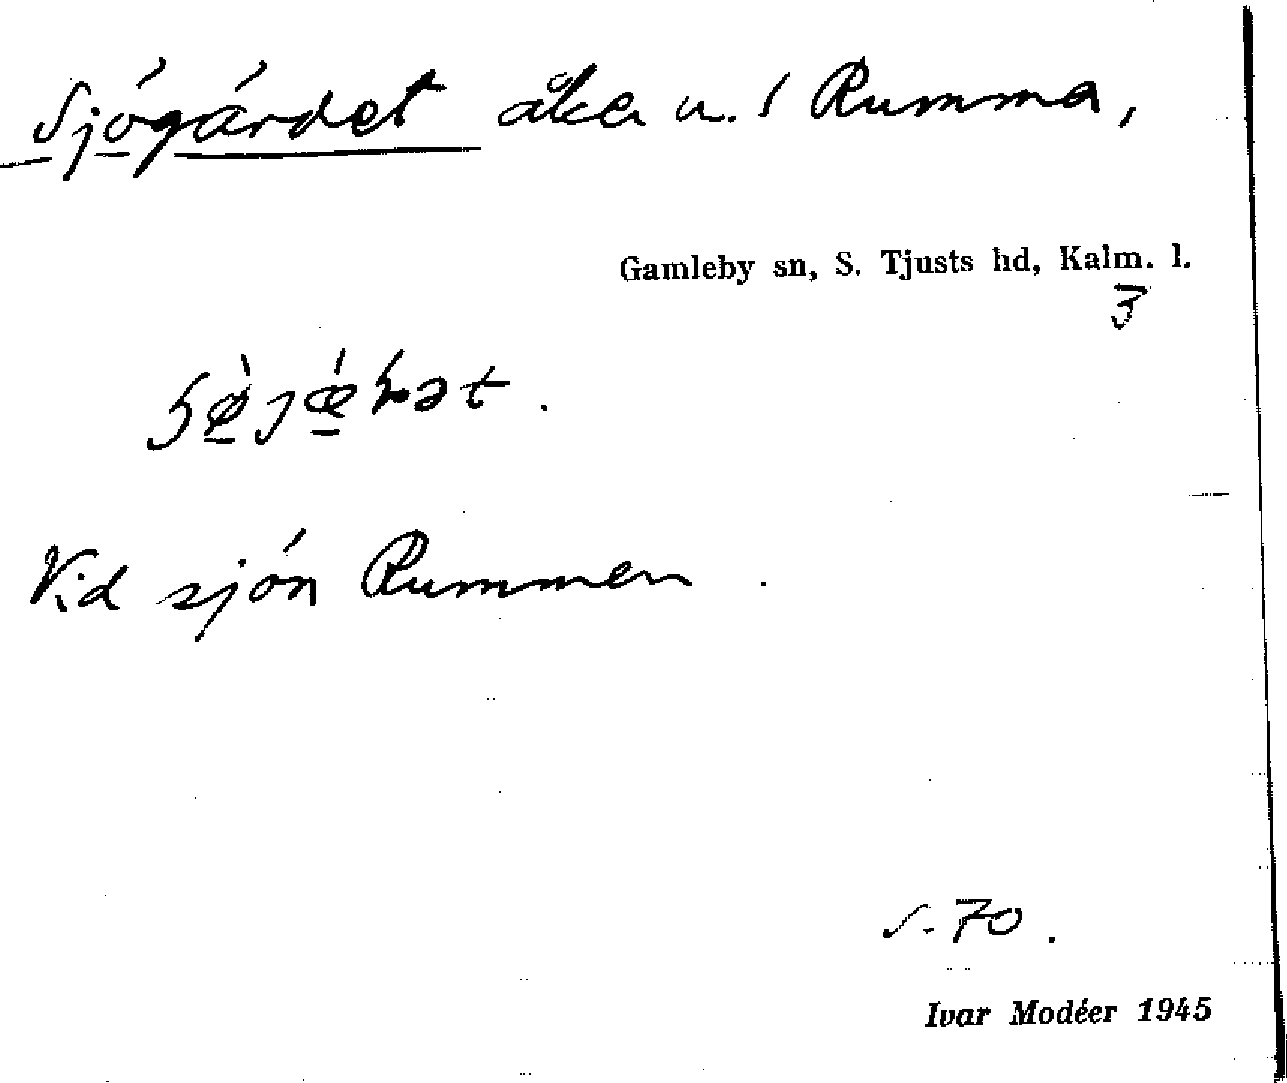 Sjögärdet åker u. / Rumma,
Gamleby sn, S. Tjusts hd, Kalm. l.
3
Vid sjön Rummen.
s. 70.
Ivar Modéer 1945